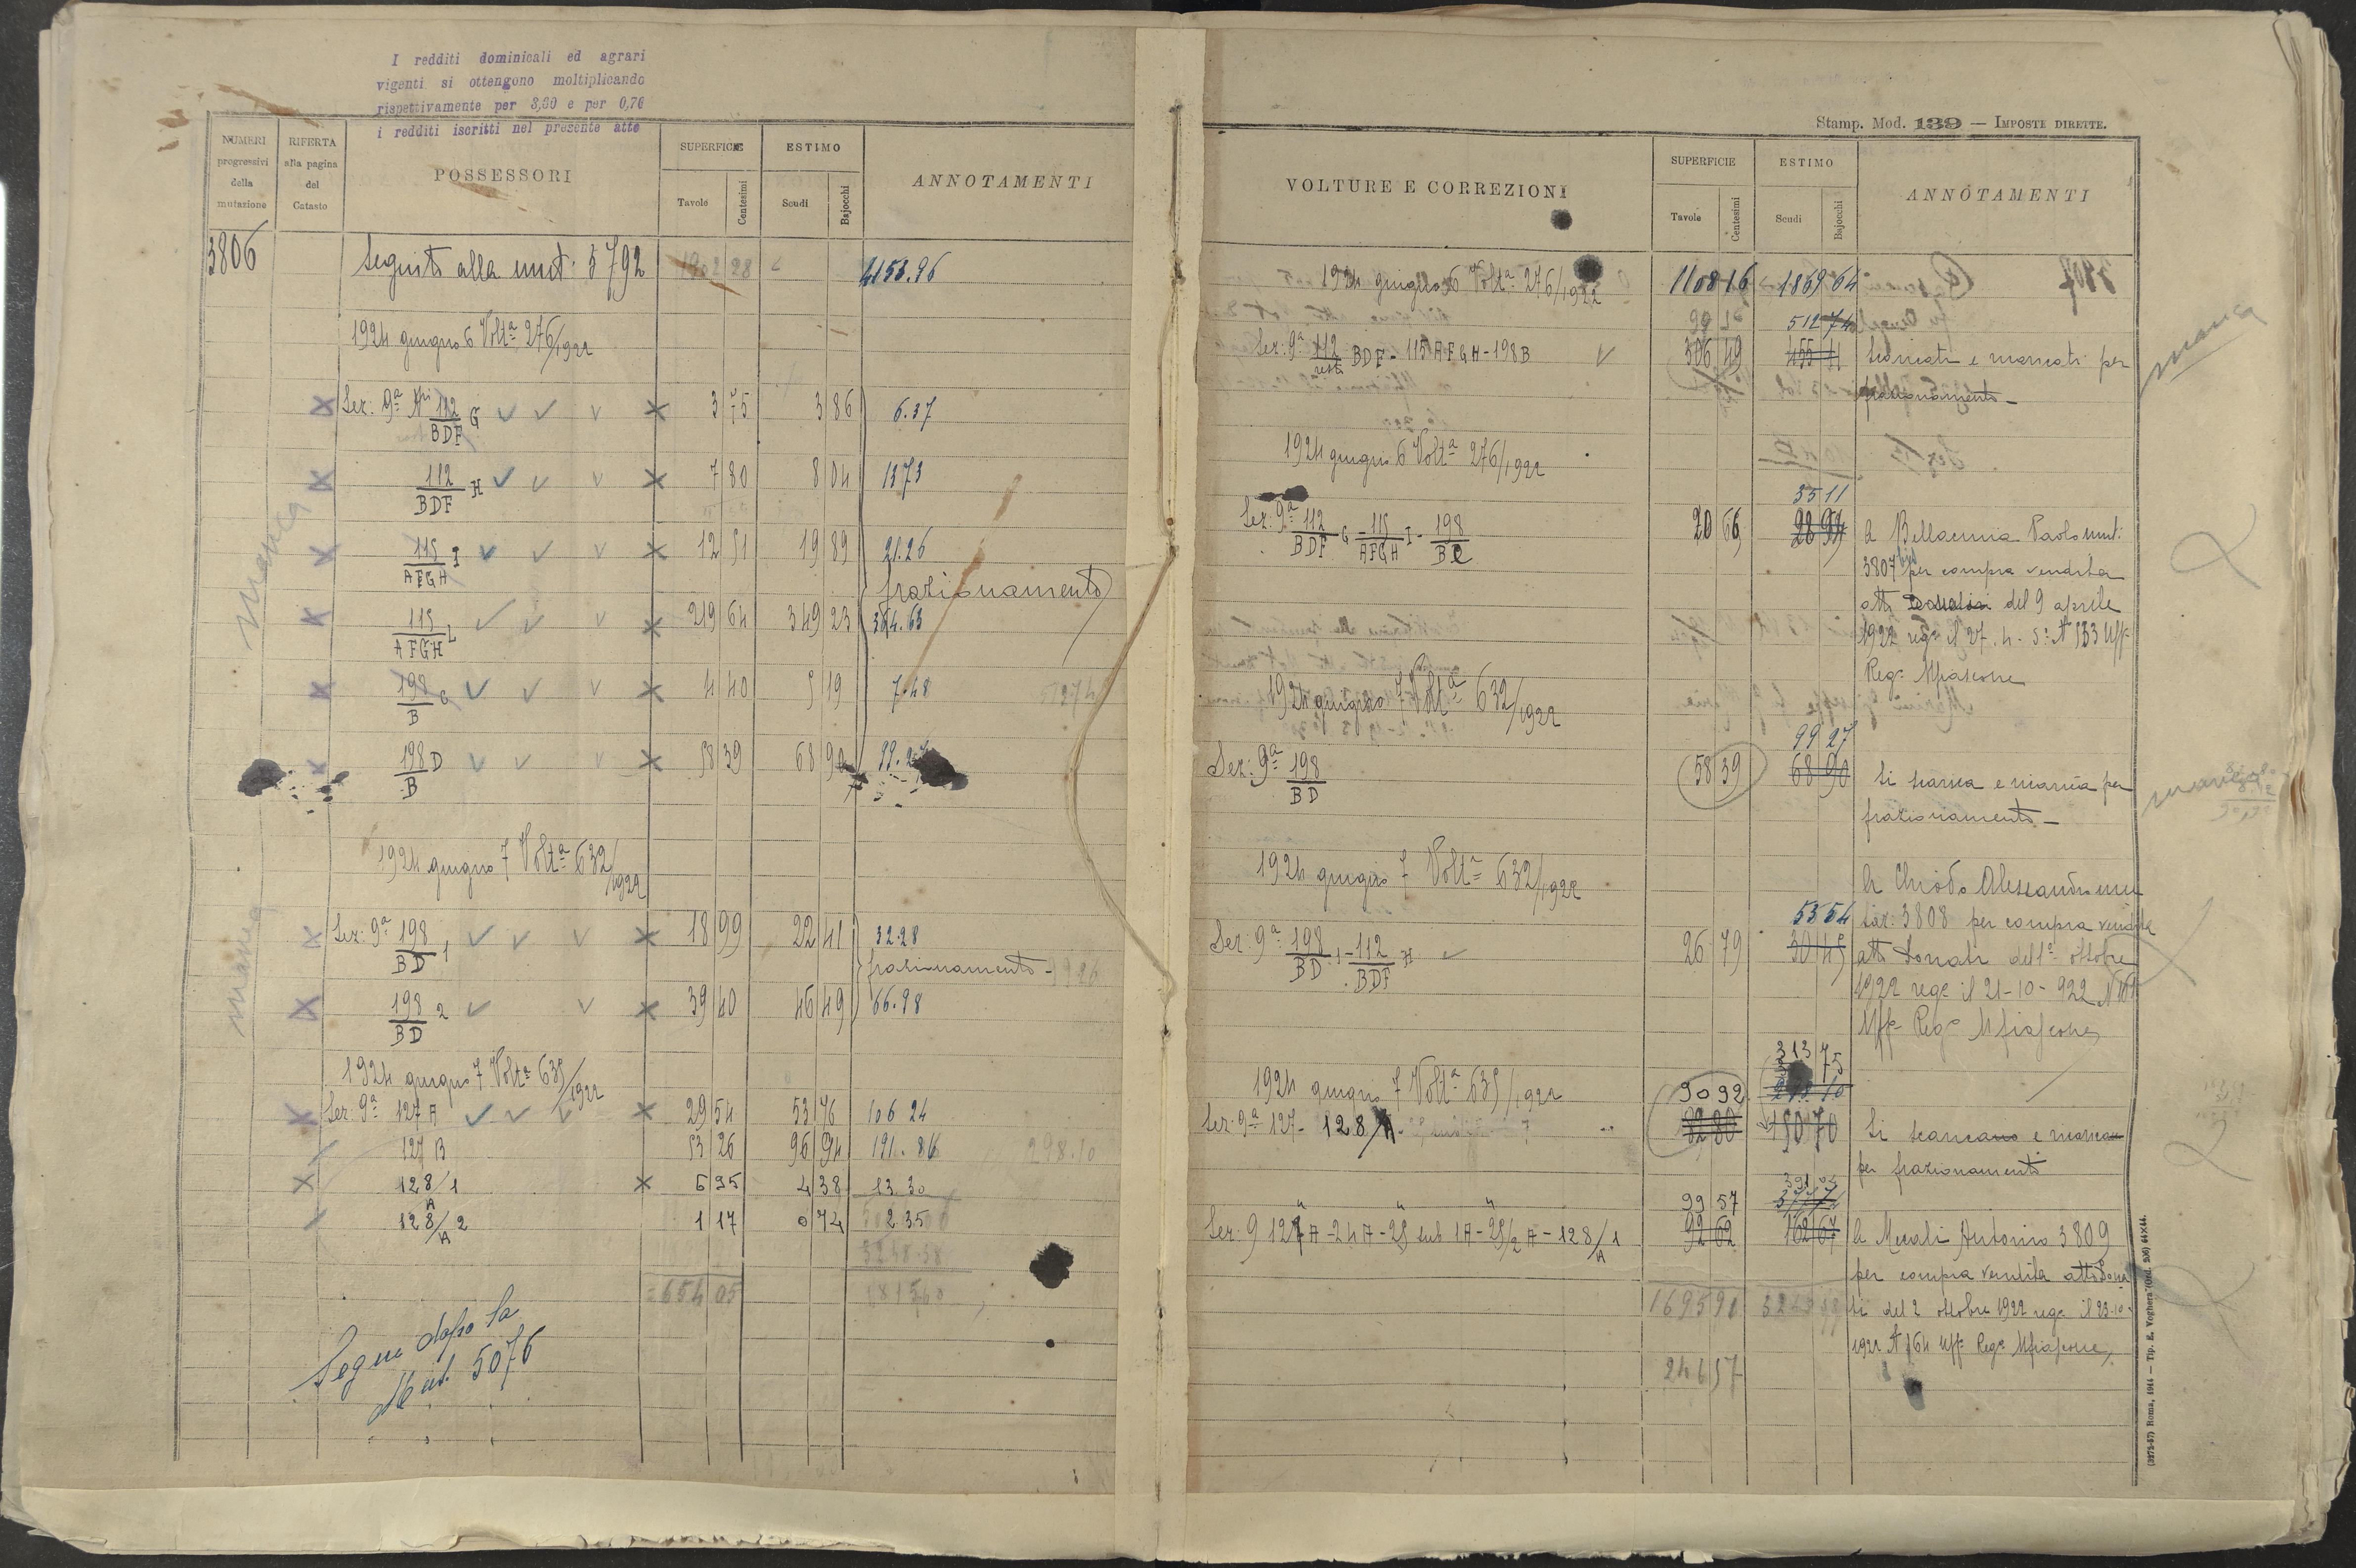 I redditi dominicali ed agrari
vigenti si ottengono moltiplicando
rispettivamente per 3,00 e per 0,76
i redditi iscritti nel presente atto
NUMERI progressivi della mutazione
RIFERTA alla pagina del Catasto
POSSESSORI
SUPERFICIE
Tavole Centesimi
ESTIMO
Scudi Bajocchi
ANNOTAMENTI
3806 Seguito alla mut: 3792 1902 28 4153.96
1924 giugno 6 Volta 276/1922
Sez: 9a Ni 112/BDF G 3 75 3 86 6.37
112/BDF H 7 80 8 04 13 73
115/AFGH I 12 51 19 89 21.26
frazionamento
115/AFGH L 219 64 349 23 364.63
198/B C 4 40 5 19 7.48
198/B D 58 39 68 90 99.
1924 giugno 7 Volta 632/1922
Sez: 9a 198/BD 1 18 99 22 41 32.28
frazionamento
198/BD 2 39 40 46 49 66.98
1924 giugno 7 Volta 635/1922
Sez: 9a 127 A 29 54 53 76 106 24
127 B 53 26 96 94 191.86 298.10
128/A 1 6 95 4 38 13.30
128/A 2 1 17 0 74 2 35
3248.38
654 05
Segue dopo la
Mut. 5076
manca
manca
Stamp. Mod. 139 — IMPOSTE DIRETTE.
VOLTURE E CORREZIONI
SUPERFICIE
Tavole Centesimi
ESTIMO
Scudi Bajocchi
ANNOTAMENTI
1924 giugno 6 Volta 276/1922 1108 16 1869 64
512 74
Sez: 9a 112 resti BDF - 115 AFGH - 198 B 306 49 455 11 Scaricati e mancati per
frazionamento
manca
1924 giugno 6 Volta 276/1922
35 11
Sez: 9a 112/BDF G - 115/AFGH I - 198/B C 20 66 28 94 A Paolo mut:
3807 per compra vendita
atto Donati del 9 aprile
1922 rega il 27.4. N 133 Uff
Rega Mfiascone
1924 giugno 7 Volta 632/1922
99 27
Sez: 9a 198/BD 58 39 68 90 Si scarica e manca per
frazionamento
manca
1924 giugno 7 Volta 632/1922
A Chiodo Alessandro mu
55 54 taz: 3808 per compra vendita
Sez: 9a 198/BD 1 - 112/BDF H 26 79 30 45 atto Donati dell'1 ottobre
1922 rega il 21-10-922
Uff Rega Mfiascone
313 75
1924 giugno 7 Volta 635/1922 90 92 298 10
Sez: 9a 127 - 128/A 82 80 150 70 Si scarica e manca
per frazionamento
99 57
Sez: 9 127 A - 24 A - 25 sub 1 A - 25/2 A - 128/A 1 92 62 162 67 A Antonio 3809
per compra vendita atto Dona
ti del 2 ottobre 1922 rega il 23-10-
1922 N 164 Uff Rega Mfiascone
1695 91
246 57
(3272-57) Roma, 1914 — Tip. E. Voghera